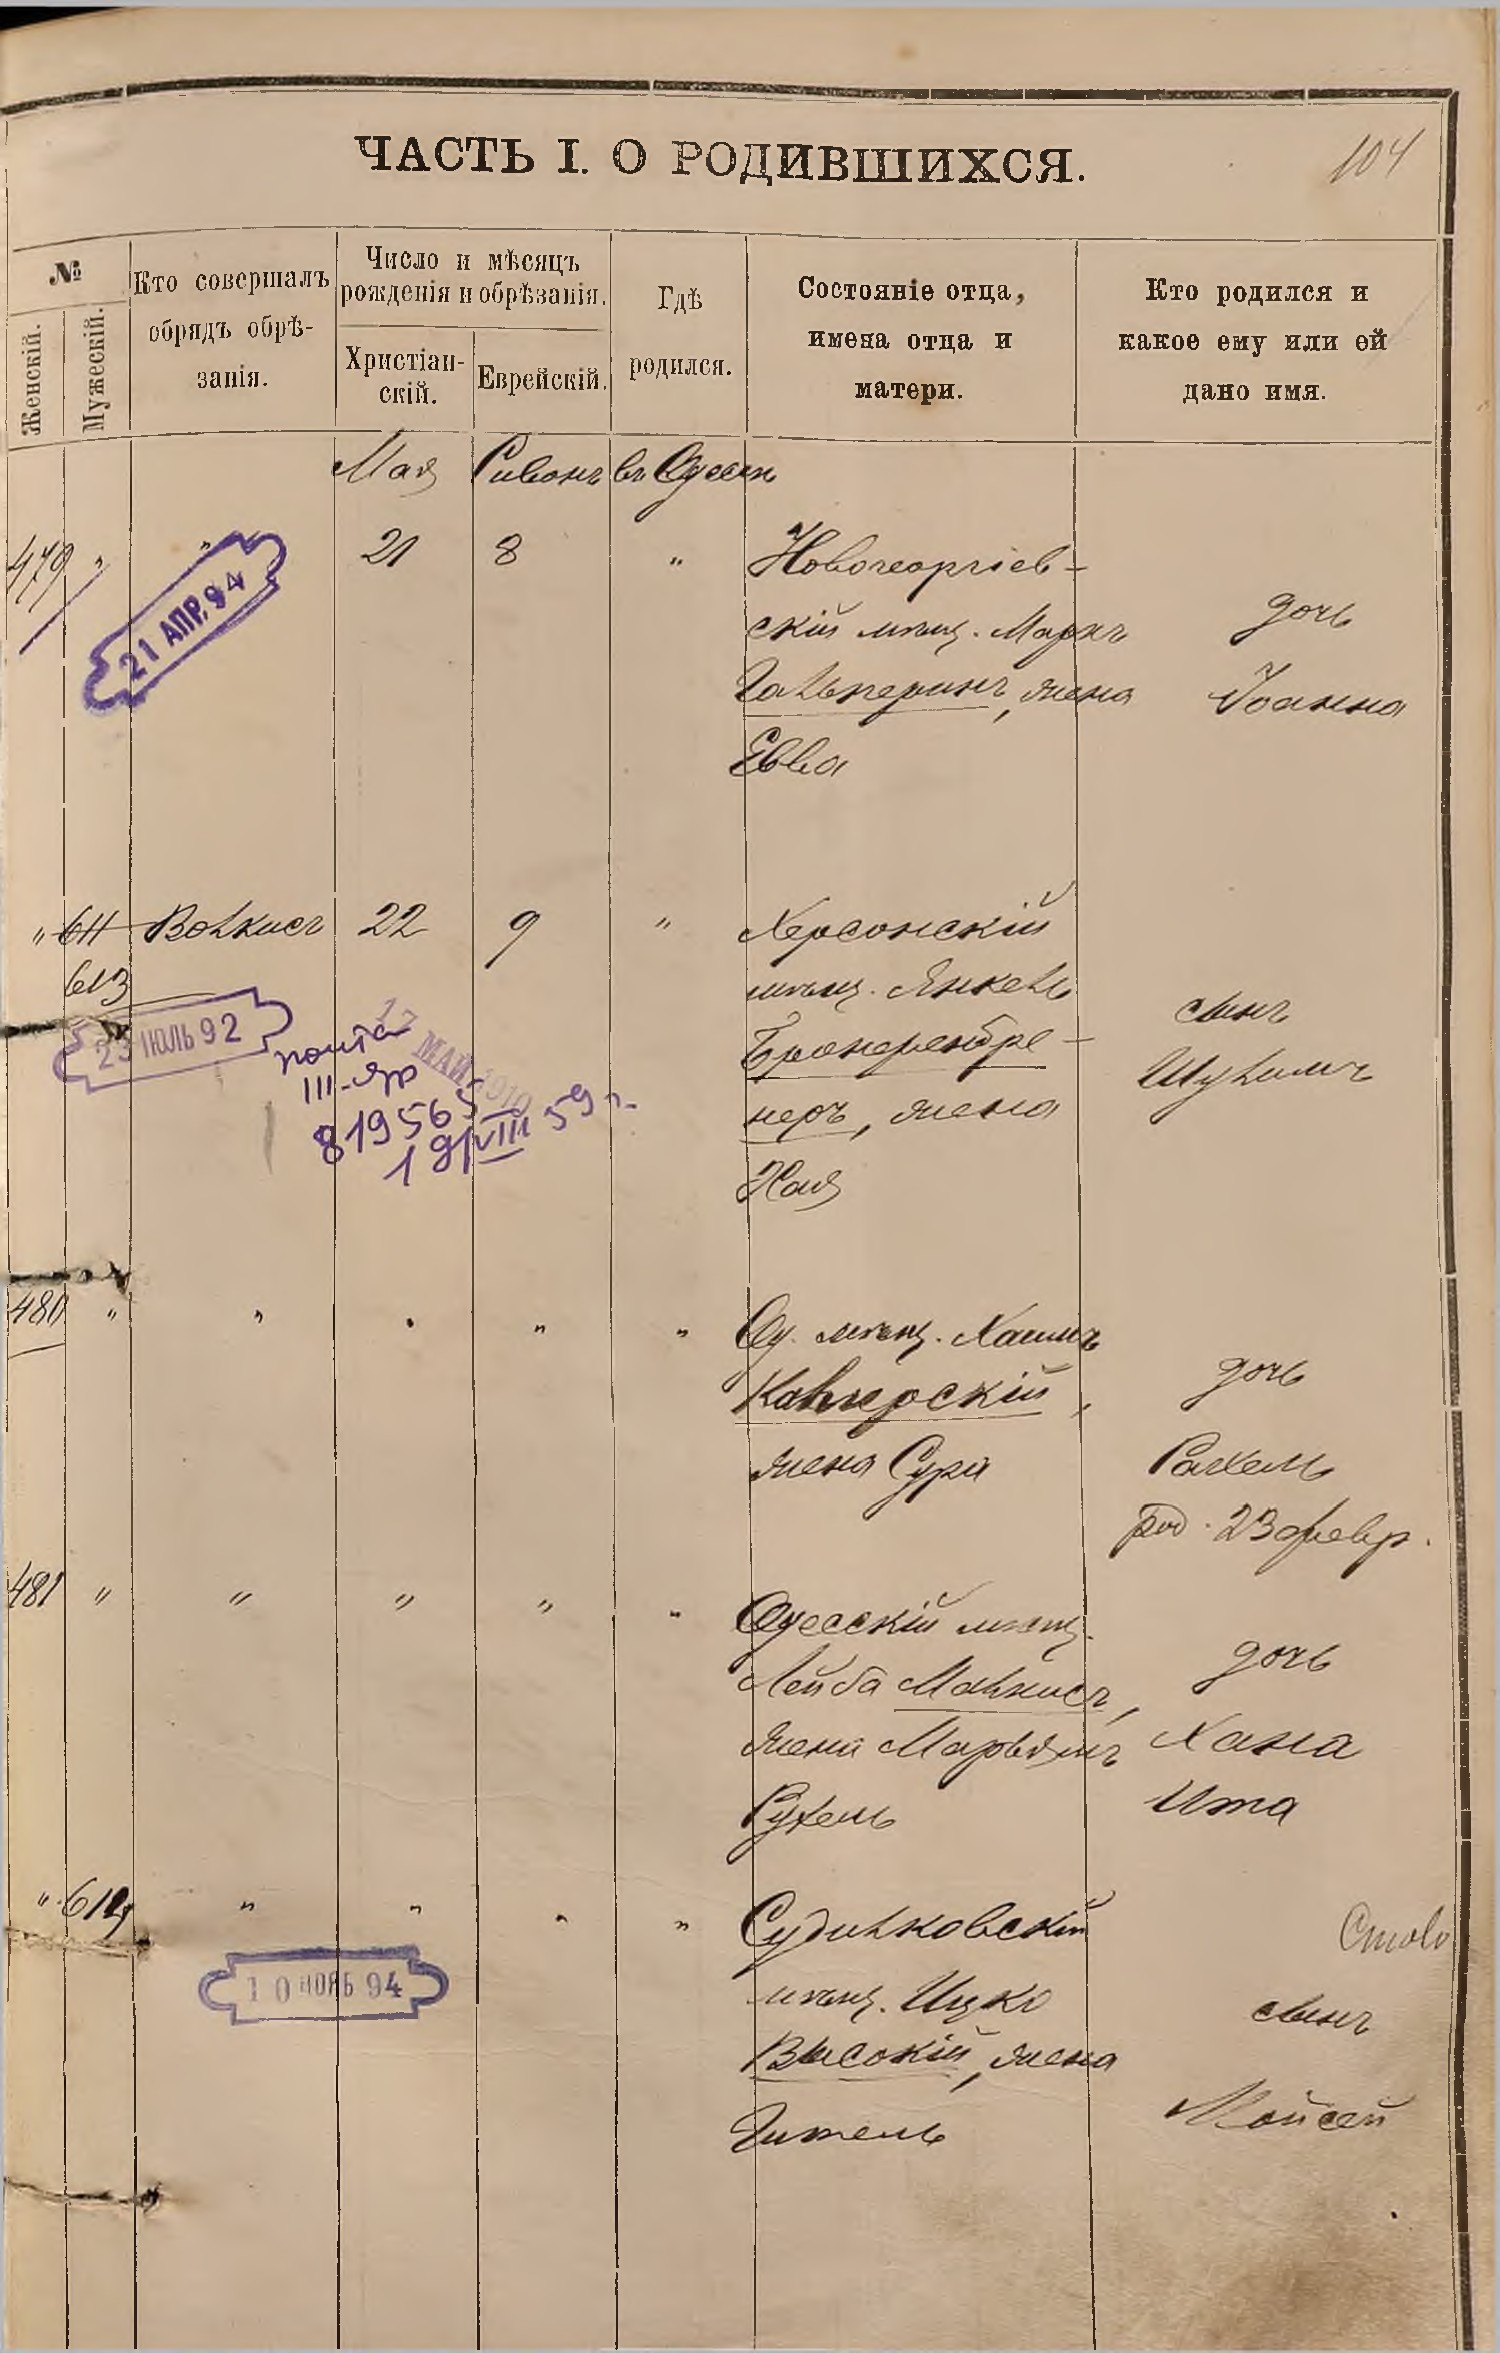 104
ЧАСТЬ I. О РОДИВШИХСЯ.
№
Женскій.
Мужескій.
Кто совершалъ
обрядъ обрѣ-
занія.
Число и мѣсяцъ
рожденія и обрѣзанія.
Христіан-
скій.
Еврейскій.
Гдѣ
родился.
Состояніе отца,
имена отца и
матери.
Кто родился и
какое ему или ей
дано имя.
Мая Сивонъ въ Одессѣ
479 " " 21 8 " Новогеоргіев-
скій мѣщ. Маркъ дочь
Гальперинъ, жена Іоанна
Евва
21 АПР. 94
" 611 Волкисъ 22 9 " Херсонскій
613 мѣщ. Янкель сынъ
Бронфенбре- Шулимъ
неръ, жена
Хая
23 ІЮЛЬ 92
17 МАЙ 1910
почта
III-яр
819565
19/VIII 59 г.
480 " " " " " Од. мѣщ. Хаимъ
Кангерскій, дочь
жена Сура Рахель
род. 23 февр.
481 " " " " " Одесскій мѣщ.
Лейба Малкисъ, дочь
жена Марьямъ Хана
Рухель Ита
" 612 " " " " Судилковскій
мѣщ. Ицко сынъ
Высокій, жена Мойсей
Гитель
10 НОЯБ 94